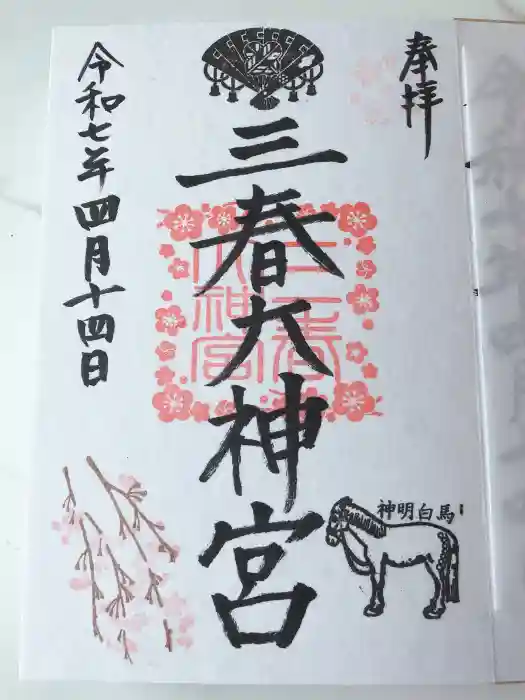 奉拝
三春大神宮
三春大神宮
神明白馬
令和七年四月十四日